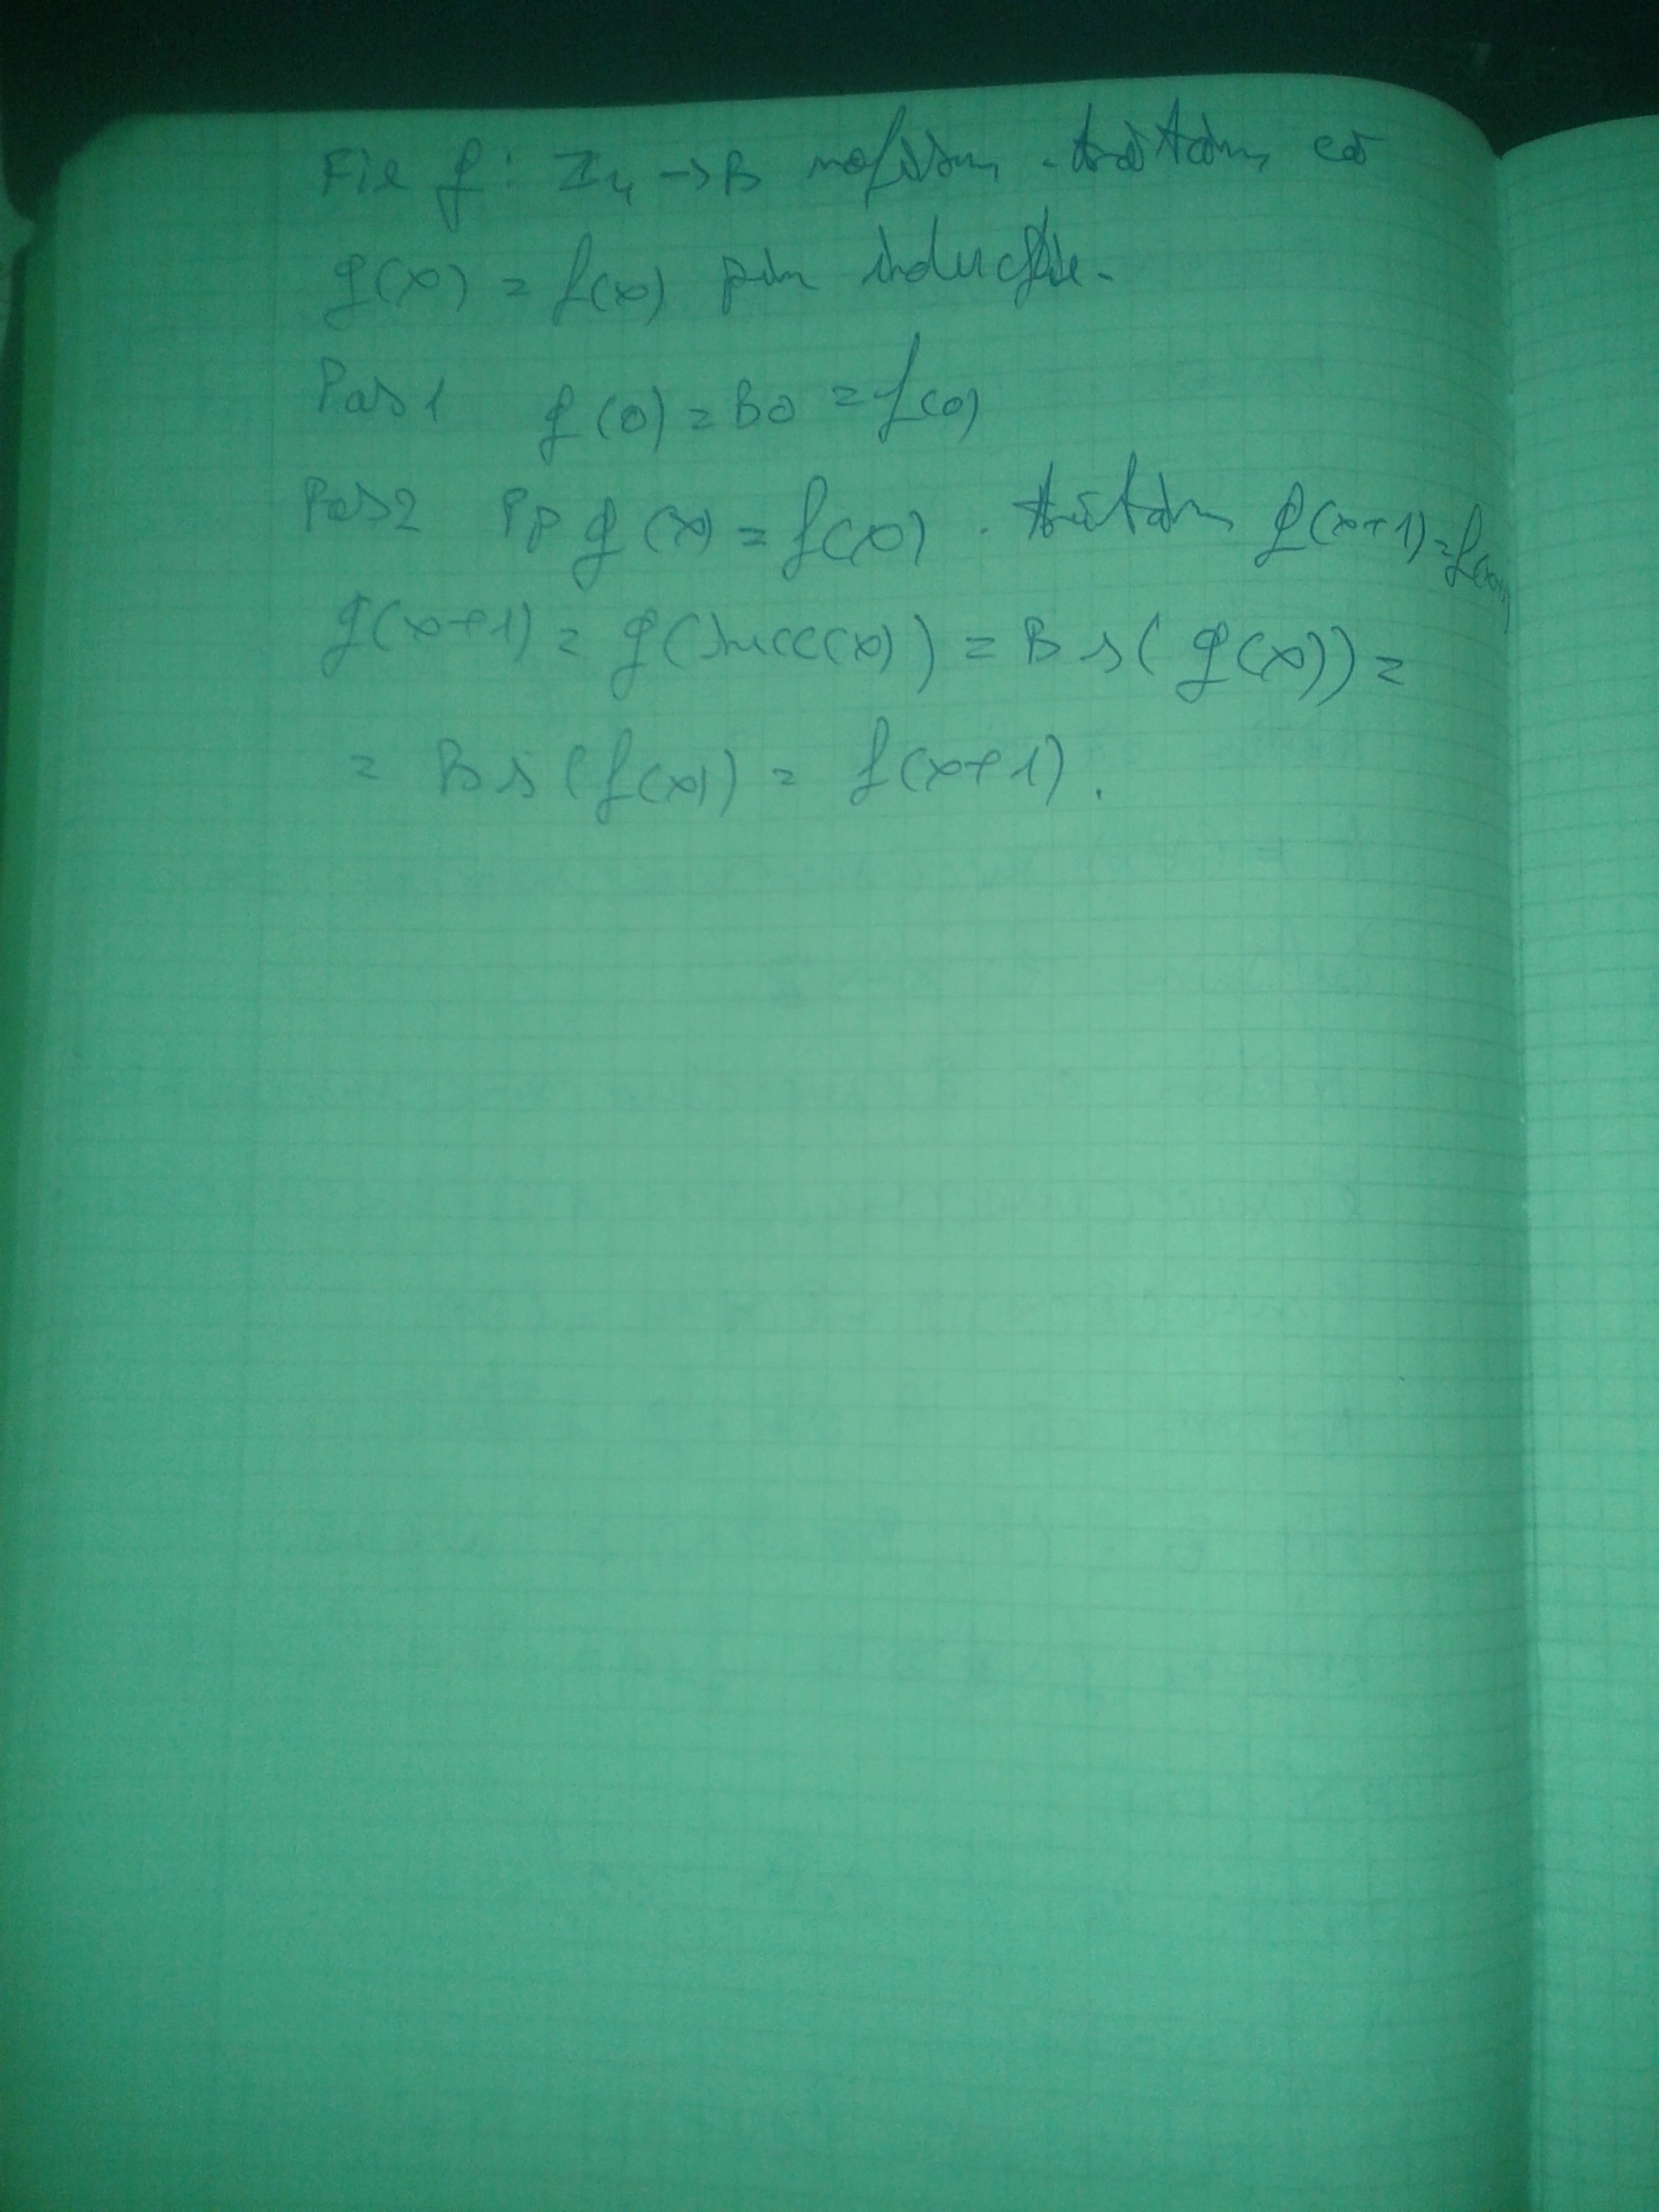 Fie g : Z₄ → B mofism. Arătăm că
g(x) = f(x) prin inducție.
Pas 1 g(0) = B0 = f(0)
Pas 2 Pp g(x) = f(x). Arătăm g(x+1) = f(x+1)
g(x+1) = g(succ(x)) = Bs(g(x)) =
= Bs(f(x)) = f(x+1).